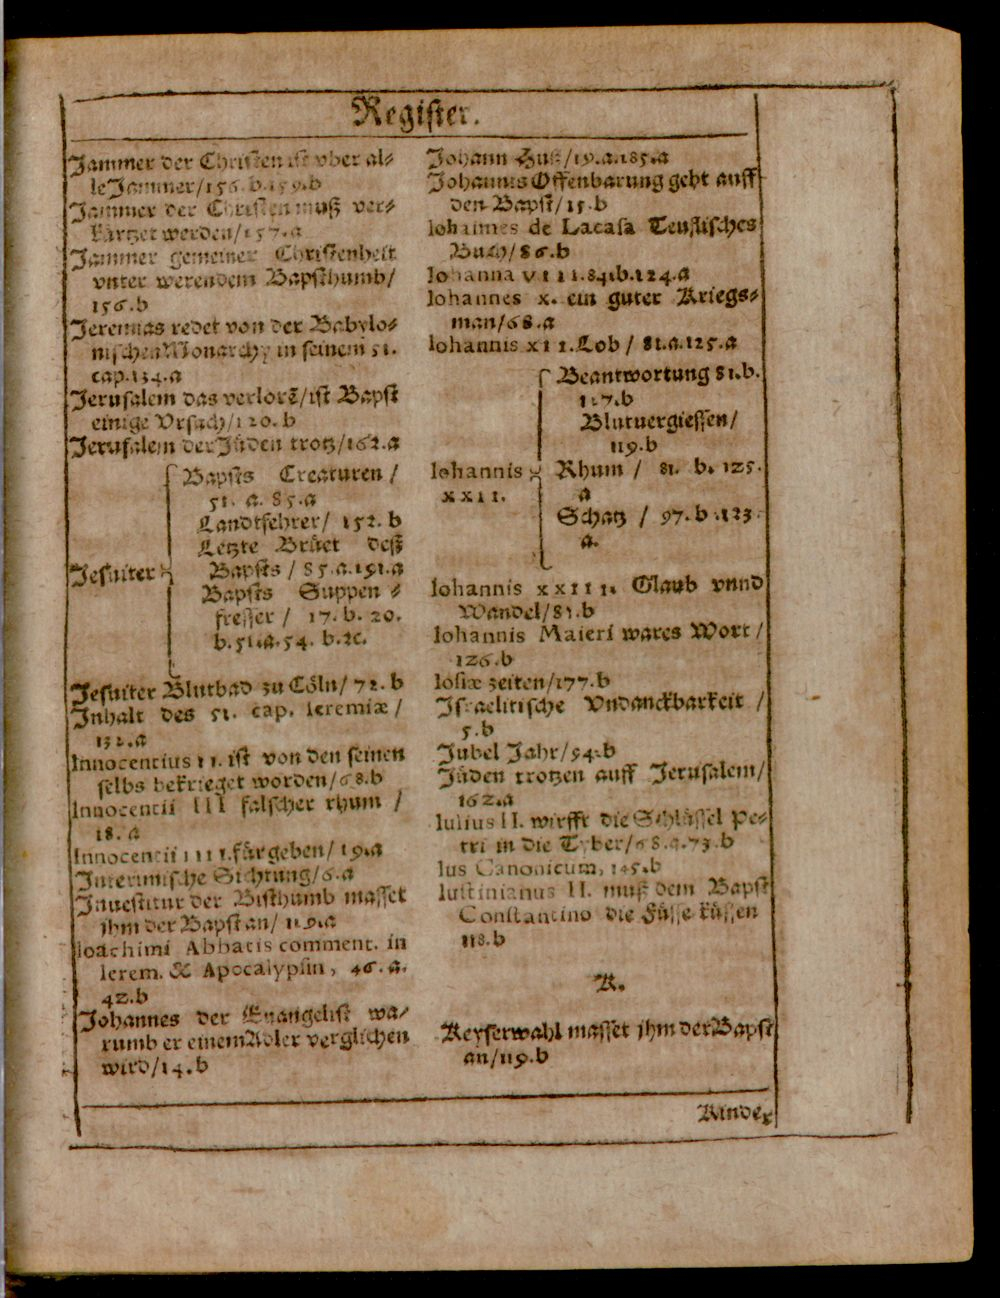 Register.
Jammer der Christen ist vber al-
le Jammer/156. b. 159.b
Jammer der Christen muß ver-
kürtzet werden/157.a
Jammer gemeiner Christenheit
vnter werendem Bapsthumb/
156.b
Jeremias redet von der Babylo-
nischen Monarchy in seinem 51.
cap.134.a
Jerusalem das verlorẽ/ist Bapst
einige Vrsach/120. b
Jerusalem der Jüden trotz/162.a
Bapsts Creaturen /
51. a. 85.a
Landtsehrer/ 152. b
Letzte Brůet deß
Jesuiter Bapsts / 85.a.191.a
Bapsts Suppen-
fresser / 17. b. 20.
b.51.a.54. b.ꝛc.
Jesuiter Blutbad zu Cöln/ 72. b
Inhalt des 51. cap. Ieremiæ /
132.a
Innocentius II. ist von den seinen
selbs bekrieget worden/68.b
Innocentii III falscher rhum /
18. a
Innocentii IIII. fürgeben/ 19.a
Interimische Sichtung/6.a
Inuestitur der Bisthumb masset
jhm der Bapst an/ 119.a
Ioachimi Abbatis comment. in
Ierem. & Apocalypsin, 46. a.
42.b
Johannes der Euangelist wa-
rumb er einem Adler verglichen
wird/14. b
Johann Huß/19.a.185.a
Johannis Offenbarung geht auff
den Bapst/15.b
Iohannes de Lacasa Teuflisches
Buch/86.b
Iohanna VIII.84.b.124.a
Iohannes X. ein guter Kriegs-
man/68.a
Iohannis XII. Lob / 81.a.125.a
Beantwortung 81.b.
127.b
Blutuergiessen/
119.b
Iohannis Rhum / 81. b. 125.
XXII. a
Schatz / 97. b .123.
a.
Iohannis XXIII. Glaub vnnd
Wandel/81.b
Iohannis Maieri wares Wort /
126.b
Iosiæ zeiten/177.b
Israelitische Vndanckbarkeit /
5.b
Jubel Jahr/94.b
Jüden trotzen auff Jerusalem/
162.a
Iulius II. wirfft die Schlüssel Pe-
tri in die Tyber/68.a.73.b
Ius Canonicum, 145.b
Iustinianus II. muß dem Bapst
Constantino die Füsse küssen
118.b
K.
Keyserwahl masset jhm der Bapst
an/119.b
Kinder